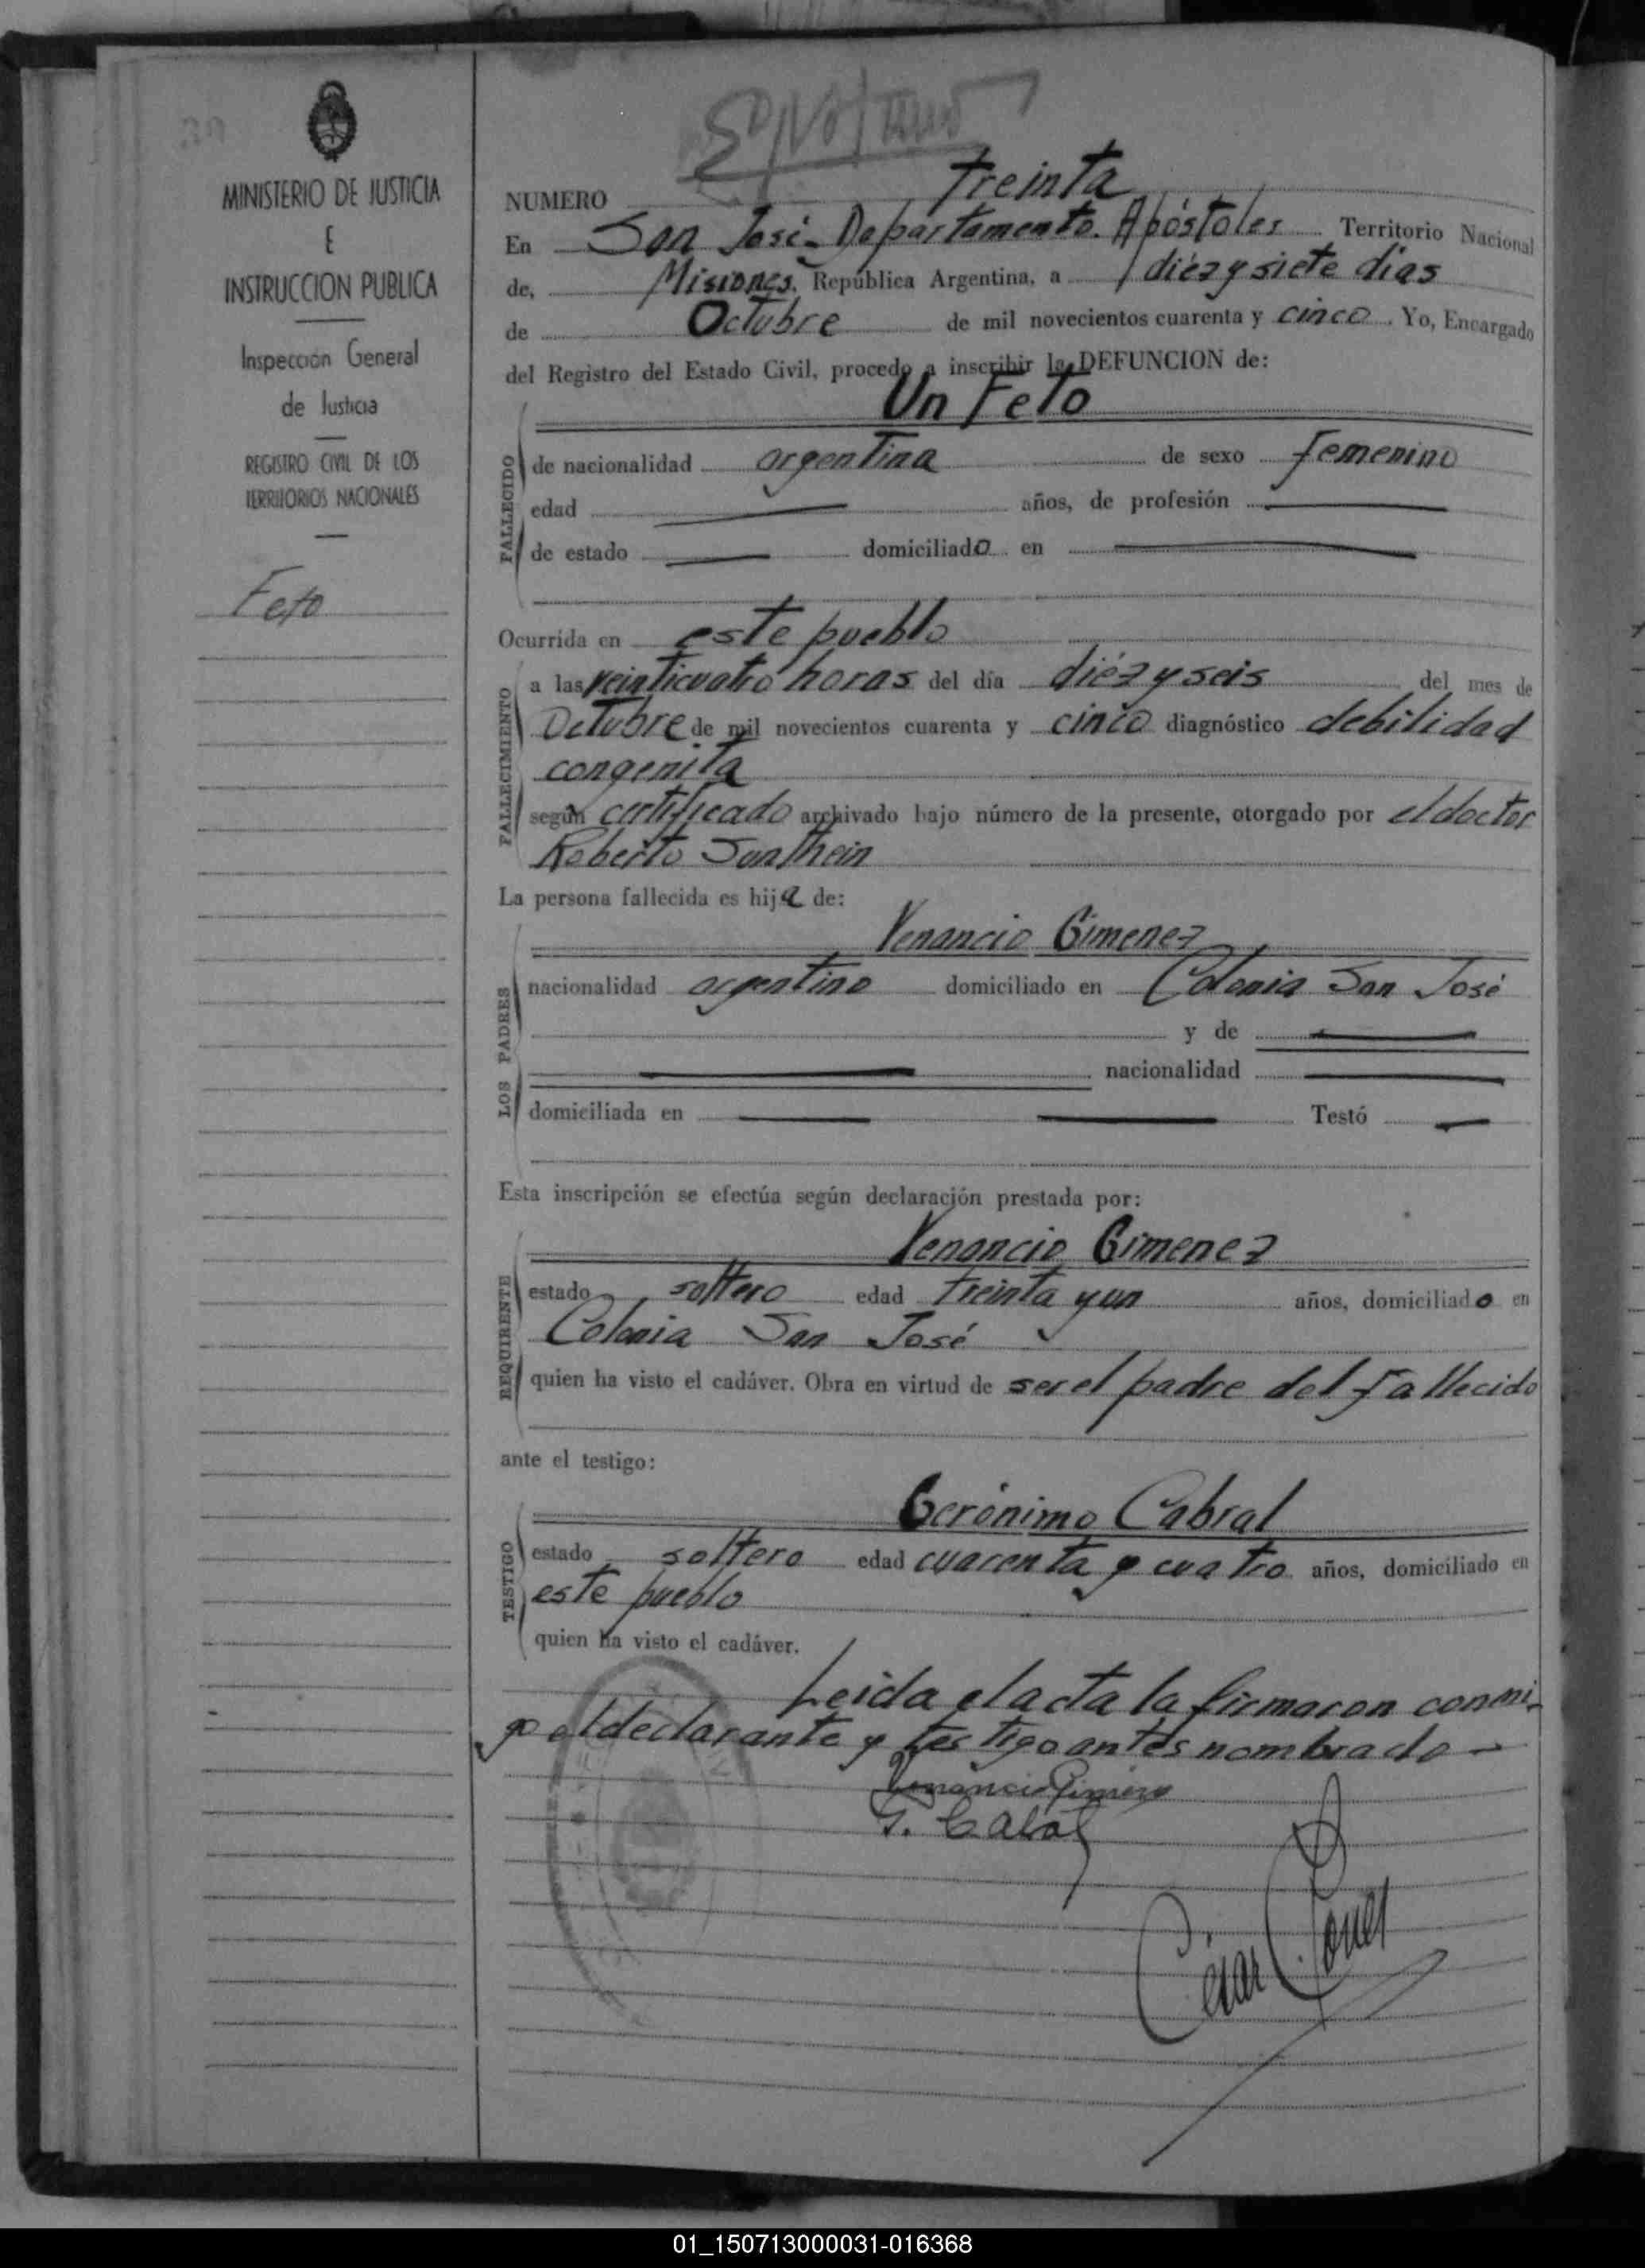 MINISTERIO DE JUSTICIA
E
INSTRUCCION PUBLICA
Inspección General
de Justicia
REGISTRO CIVIL DE LOS
TERRITORIOS NACIONALES
Feto
NUMERO treinta
En San José - Departamento. Apóstoles Territorio Nacional
de, Misiones, República Argentina, a diéz y siete dias
de Octubre de mil novecientos cuarenta y cinco. Yo, Encargado
del Registro del Estado Civil, procedo a inscribir la DEFUNCION de:
Un Feto
FALLECIDO
de nacionalidad argentina de sexo femenino
edad años, de profesión
de estado domiciliado en
Ocurrida en este pueblo
FALLECIMIENTO
a las veinticuatro horas del día diéz y seis del mes de
Octubre de mil novecientos cuarenta y cinco diagnóstico debilidad
congenita
según certificado archivado bajo número de la presente, otorgado por el doctor
Roberto
La persona fallecida es hija de:
Venancio Gimenez
LOS PADRES
nacionalidad argentino domiciliado en Colonia San José
y de
nacionalidad
domiciliada en Testó
Esta inscripción se efectúa según declaración prestada por:
Venancio Gimenez
REQUIRENTE
estado soltero edad treinta y un años, domiciliado en
Colonia San José
quien ha visto el cadáver. Obra en virtud de ser el padre del fallecido
ante el testigo:
Gerónimo Cabral
TESTIGO
estado soltero edad cuarenta y cuatro años, domiciliado en
este pueblo
quien ha visto el cadáver.
Leida el acta la firmaron conmi-
go el declarante y testigo antes nombrado -
Venancio Gimenez
G. Cabral
César
01_150713000031-016368